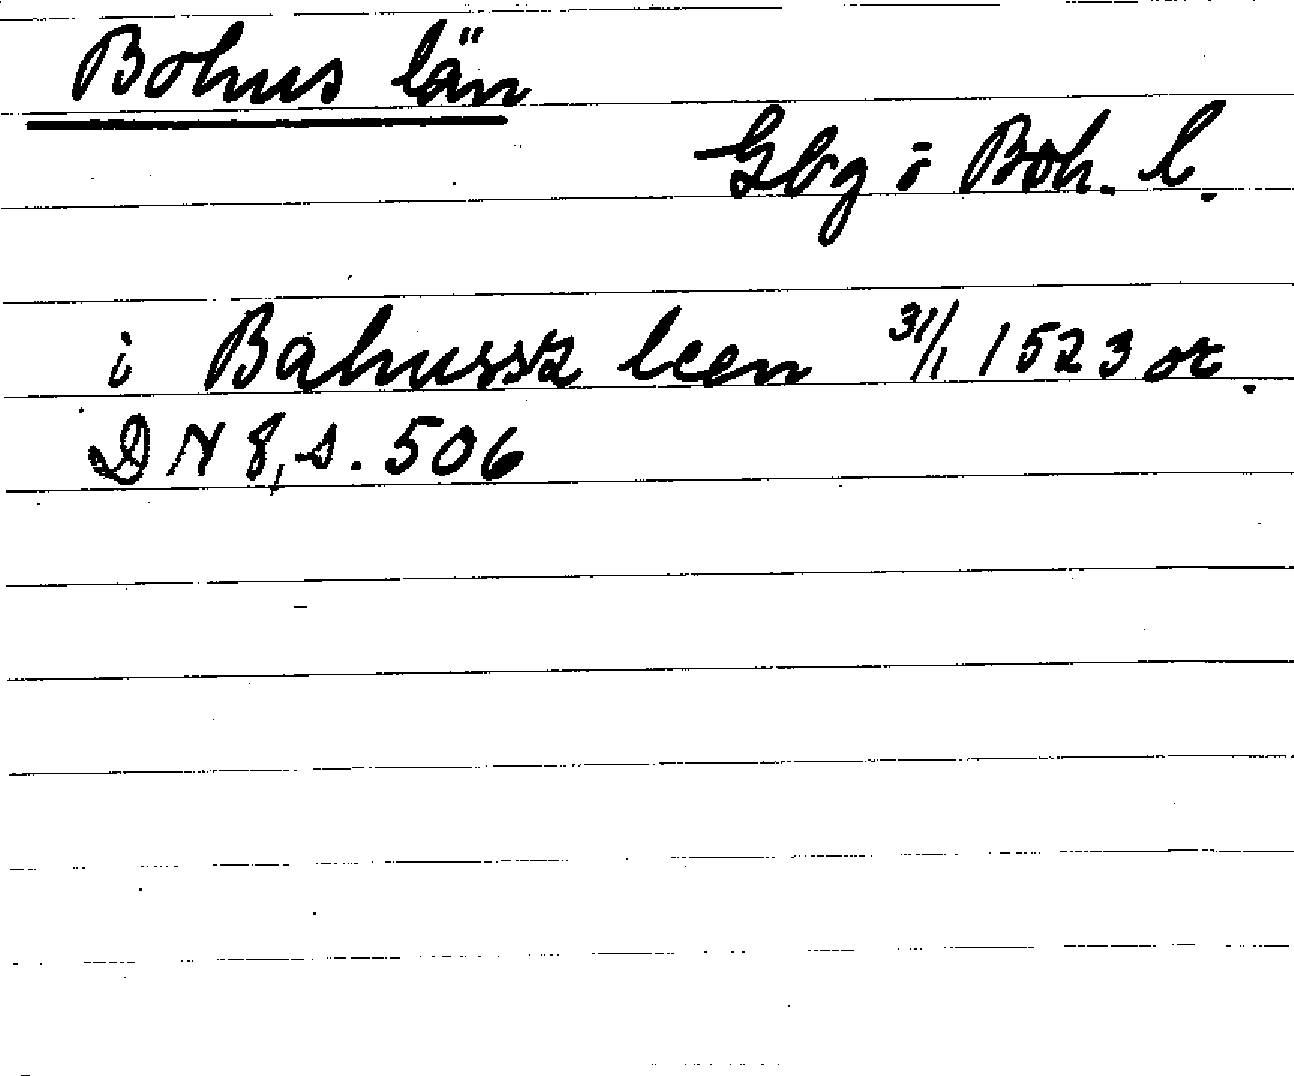 Bohus län
Gbg o Boh. l.
i Bahussz leen 31/1 1523 or.
DN 8, s. 506